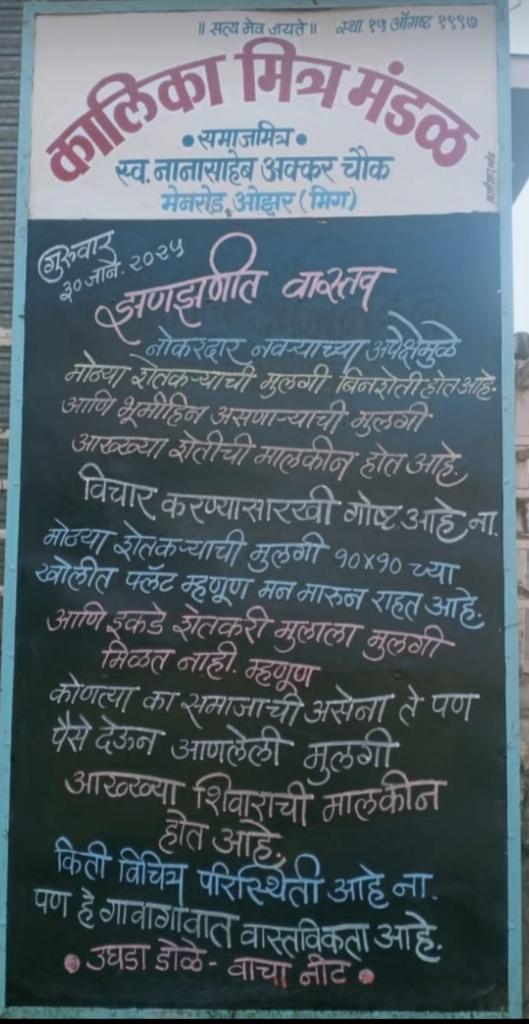 ॥ सत्य मेव जयते ॥ स्था. १५ ऑगष्ट १९९७
कालिका मित्र मंडळ
• समाजमित्र •
स्व. नानासाहेब अक्कर चौक
मेनरोड, ओझर (मिग)
गुरुवार
३० जाने. २०२५
झणझणीत वास्तव
नोकरदार नवऱ्याच्या अपेक्षेमुळे
मोठ्या शेतकऱ्याची मुलगी बिनशेती होत आहे.
आणि भूमीहिन असणाऱ्याची मुलगी
आख्ख्या शेतीची मालकीन होत आहे.
विचार करण्यासारखी गोष्ट आहे ना.
मोठ्या शेतकऱ्याची मुलगी १०x१० च्या
खोलीत फ्लॅट म्हणूण मन मारुन राहत आहे.
आणि इकडे शेतकरी मुलाला मुलगी
मिळत नाही. म्हणूण
कोणत्या का समाजाची असेना ते पण
पैसे देऊन आणलेली मुलगी
आख्ख्या शिवाराची मालकीन
होत आहे.
किती विचित्र परिस्थिती आहे ना.
पण हे गावागावात वास्तविकता आहे.
• उघडा डोळे - वाचा नीट •